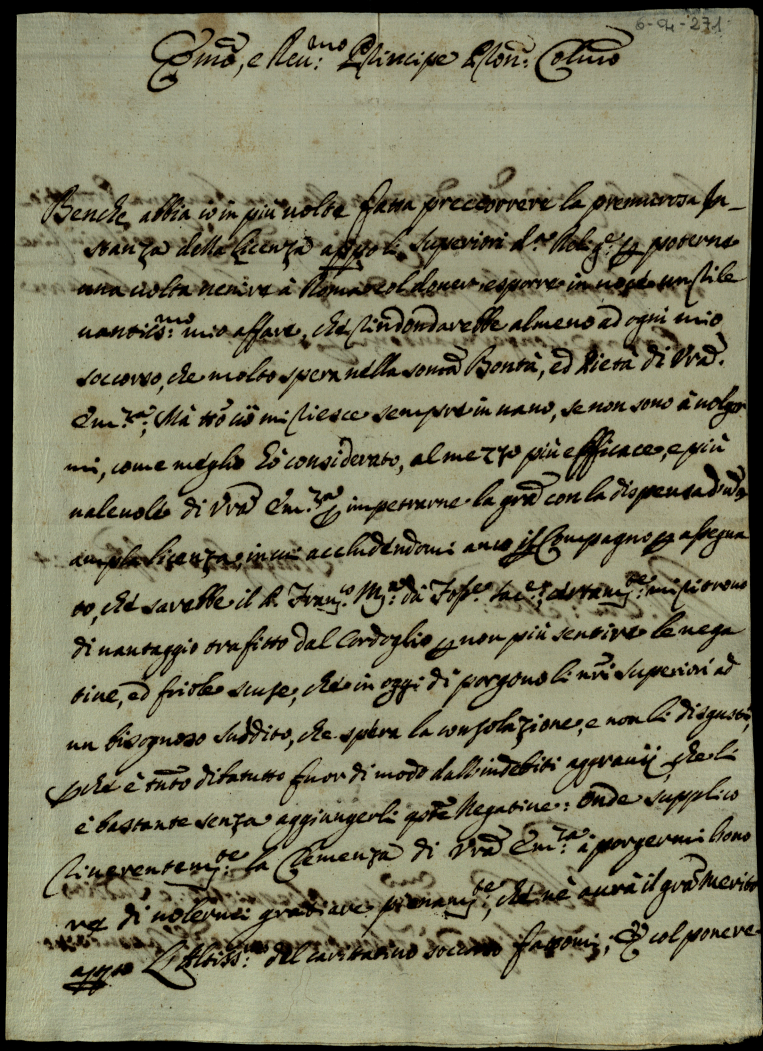 6-4-271
Em̃o, e Reu.mo Principe Pron: Colmo
Benche abbia io in più uolte fatta preccorrere la premurosa In-
stanza della licenza appo li Superiori d.a Relig.e p poterne
una uolta uenire à Roma col douer esporre in uoce un rile
uantiss.mo mio affare, che rindondarebbe almeno ad ogni mio
soccorso, che molto spera nella somã Bontà, ed Pietà di Vrã
Em.za; Mà ttõ ciò mi riesce sempre in uano, se non sono à uolger
mi, come meglio hò considerato, al mezzo più efficace, e più
ualeuole di Vrã Em.za p impetrarne la grã con la dispensa d'un
ampla licenza, in cui accludendomi anco il Compagno p assegna
to, che sarebbe il P. Fran.co M.a da certam.te mi ritrouo
di uantaggio trafitto dal Cordoglio p non più sentire le nega
tiue, ed friole scuse, che in oggi di porgono li nrĩ Superiori ad
un bisognoso suddito, che spera la consolazione, e non li disgusti,
pche è tutto dibatutto fuor di modo dall'indebiti aggrauij, che li
è bastante senza aggiungerli qste Negatiue: Onde supplico
riuerentem.te la Clemenza di Vrã Em.za à porgermi l'hono
re di uolermi graziare pienam.te, che nè aurà il grã Merito
appo L'Altiss.mo del caritatiuo soccorso fattomi; Et col ponere